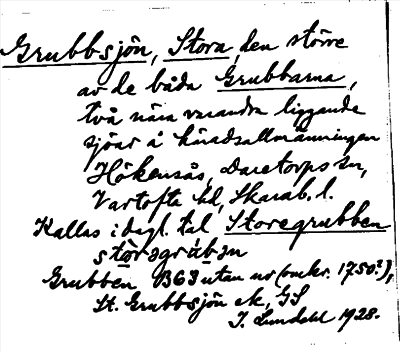 Grubbsjön, Stora, den större
av de båda Grubbarna,
två nära varandra liggande
sjöar å häradsallmänningen
Hökensås, Daretorps sn,
Vartofta hd, Skarab. l.
Kallas i dagl. tal Storegrubben
stòrəgrúbən
Grubben B63 utan nr (omkr. 1750?),
St. Grubbsjön ek, GS
J. Lundahl 1928.